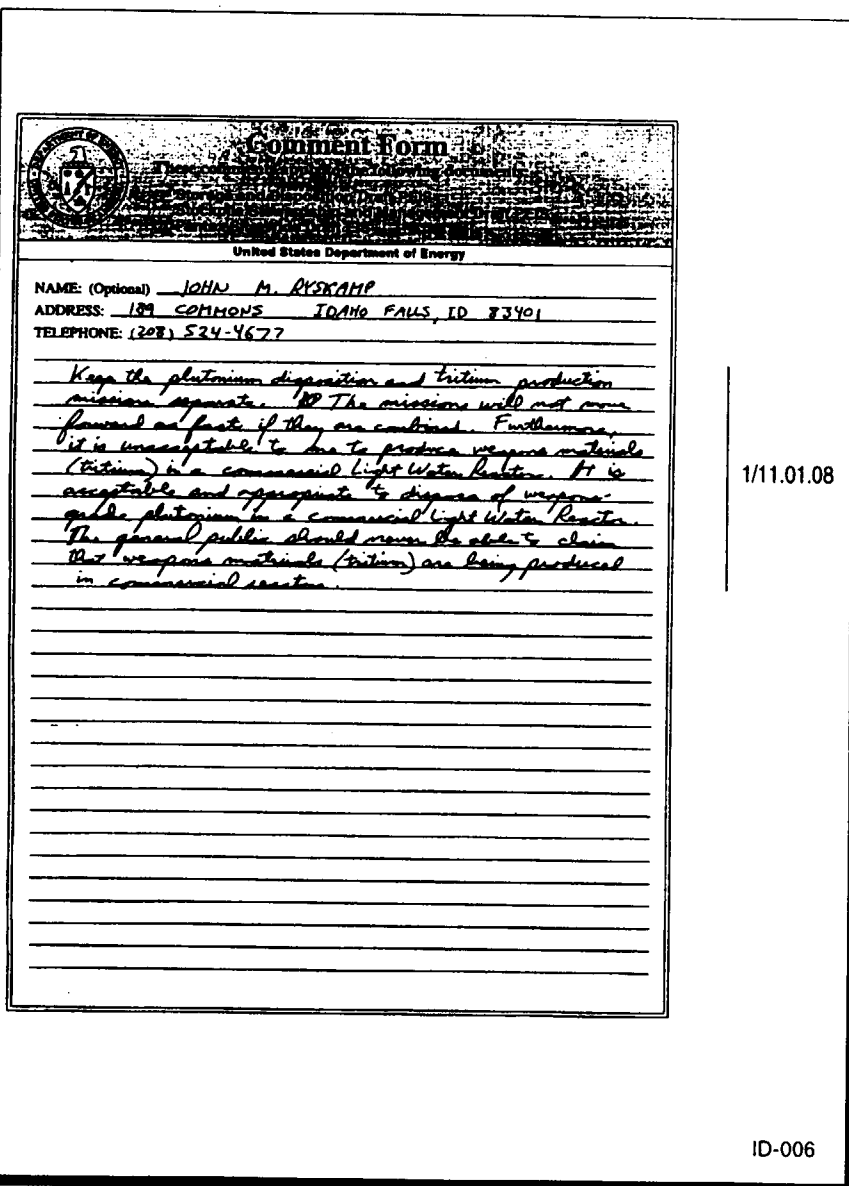 Comment Form
These comments the following documents
Storage and Disposition Draft
United States Department of Energy
NAME: (Optional) JOHN M. RYSKAMP
ADDRESS: 189 COMMONS IDAHO FALLS, ID 83401
TELEPHONE: (208) 524-4677
Keep the plutonium disposition and tritium production
missions separate. The missions will not move
forward as fast if they are combined. Furthermore,
it is unacceptable to me to produce weapons materials
(tritium) in a commercial Light Water Reactor. It is
acceptable and appropriate to dispose of weapons-
grade plutonium in a commercial Light Water Reactor.
The general public should never be able to claim
that weapons materials (tritium) are being produced
in commercial reactors.
1/11.01.08
ID-006